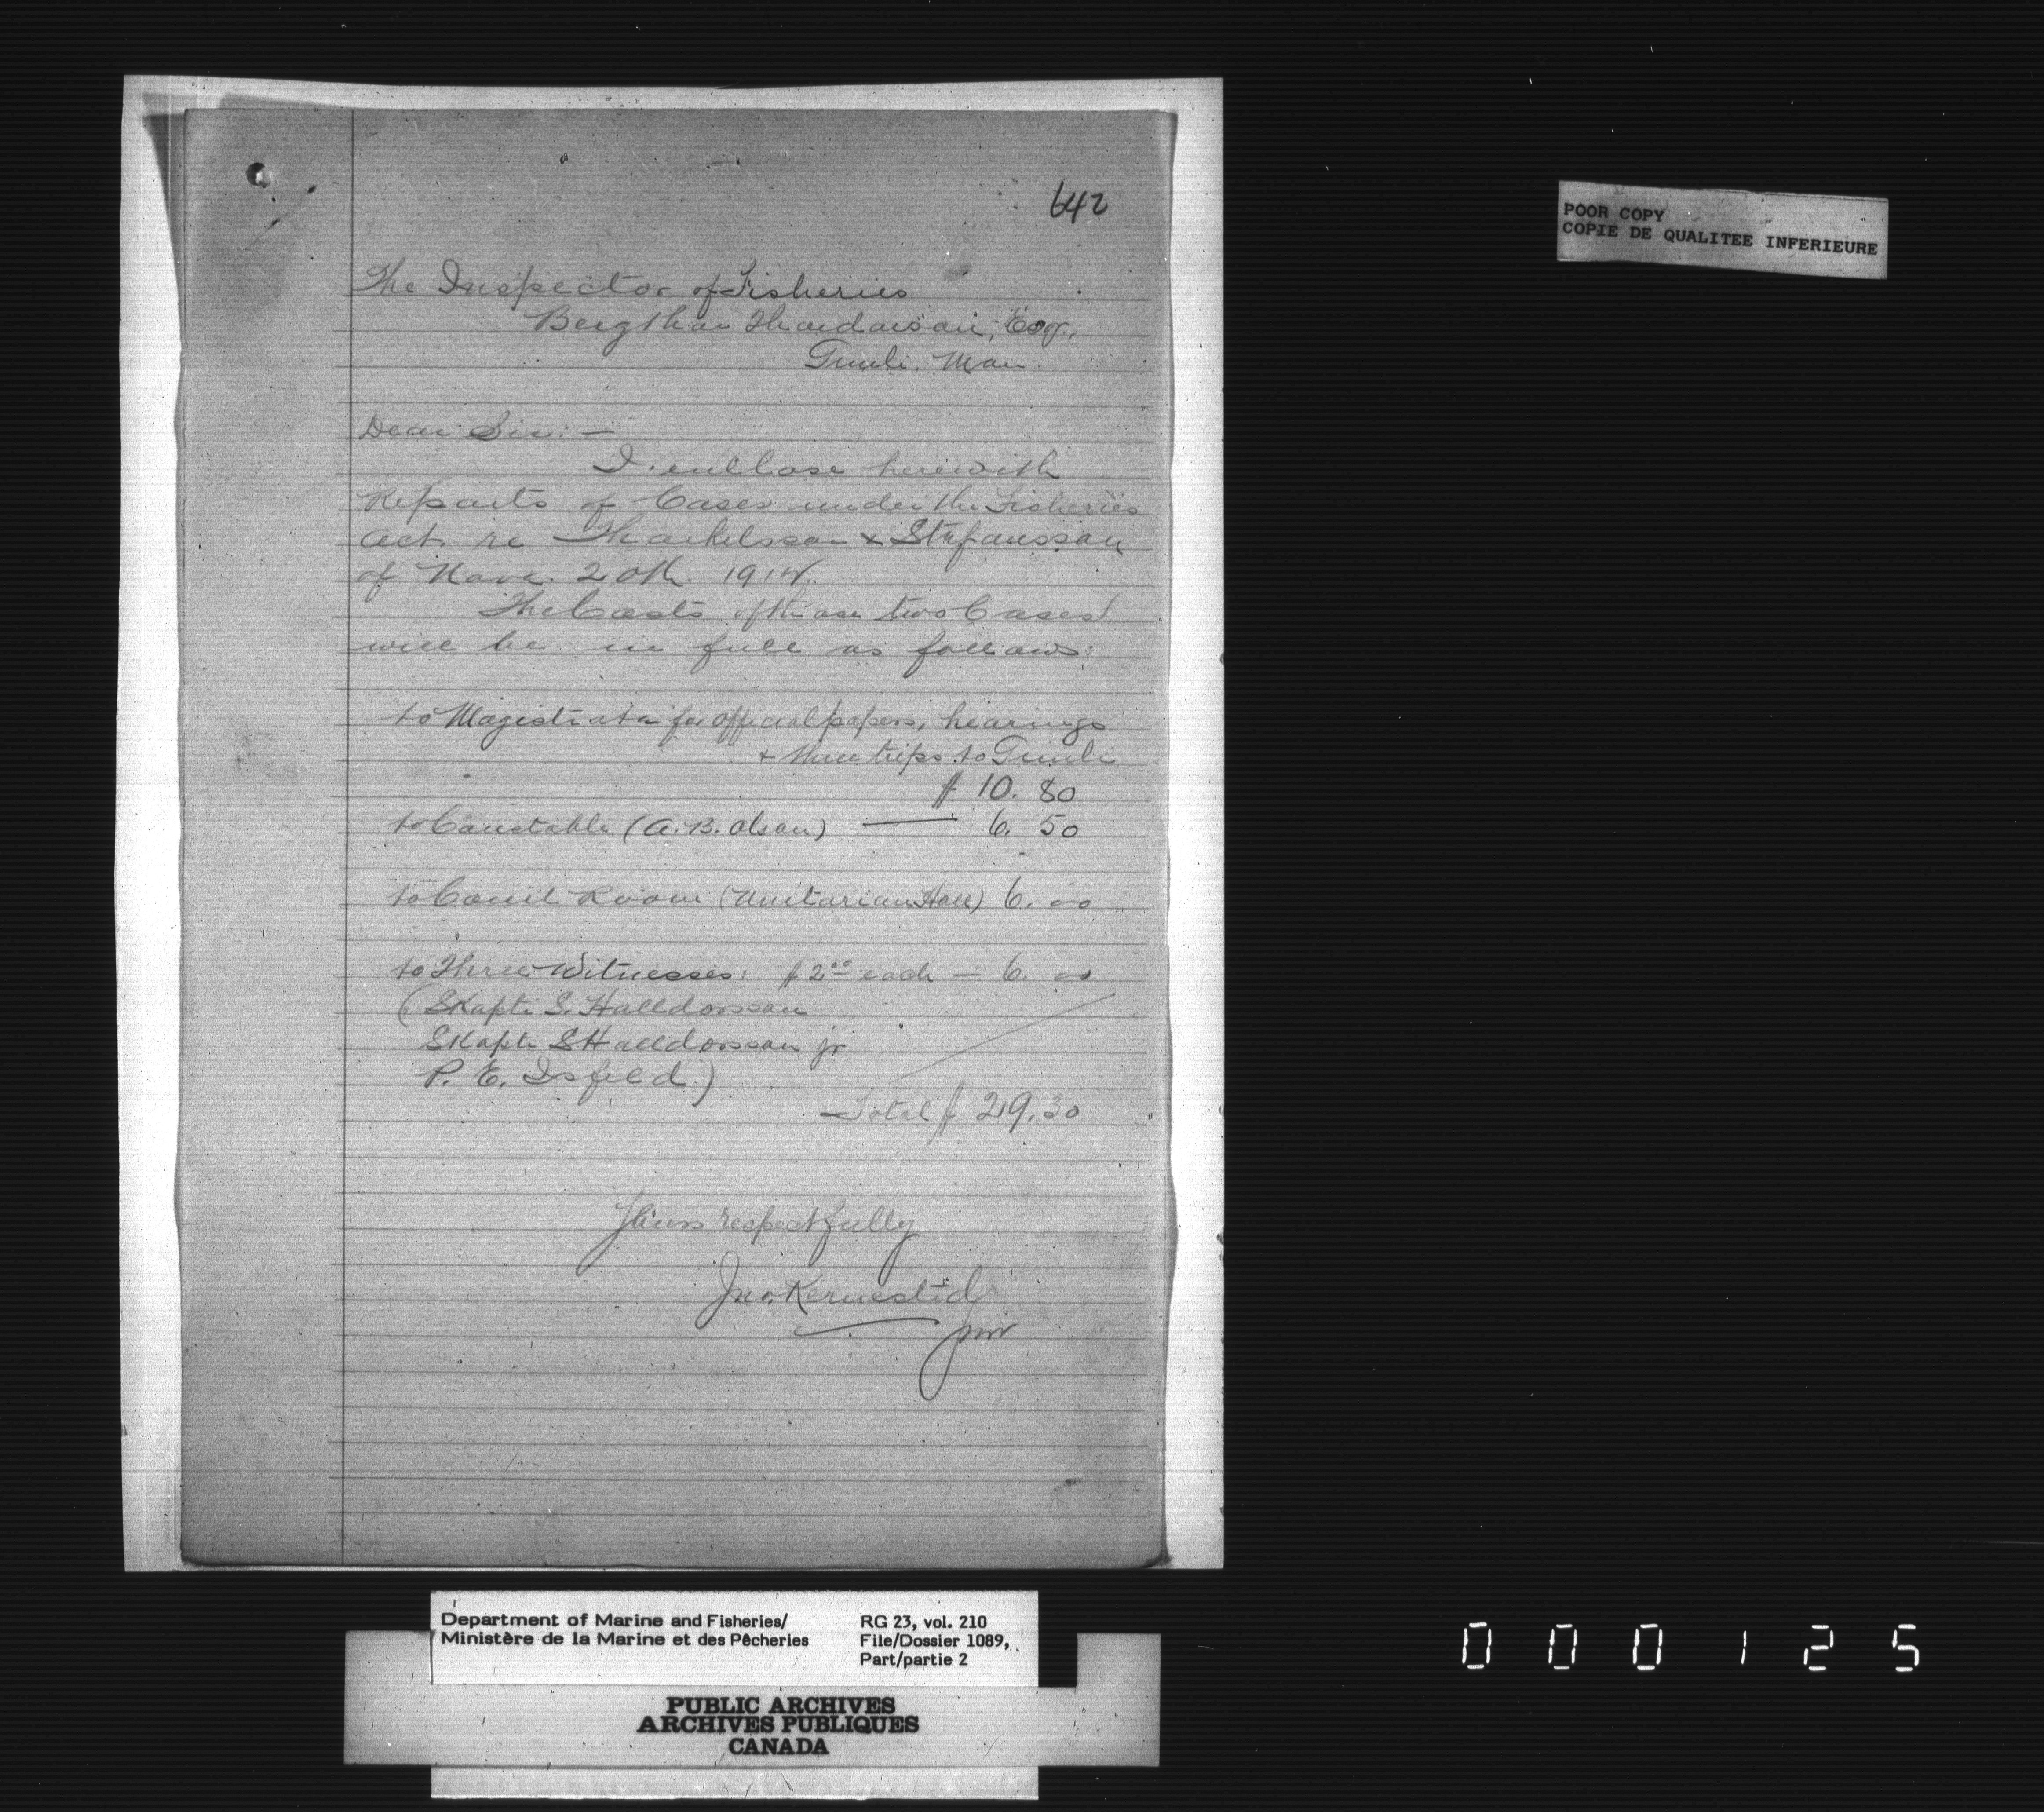 642
The Inspector of Fisheries
Bergthor Thordarson, Esq.,
Gimli. Man.
Dear Sir: —
I enclose herewith
Reports of Cases under the Fisheries
Act. re Thorkelsson & Stefansson
of Nove. 20th. 1914.
The Costs of those two Cases
will be in full as follows:
to Magistrate for official papers, hearings
& three trips to Gimli
$ 10. 80
to Constable (A. B. Olson) — 6. 50
to Court Room (Unitarian Hall) 6. 00
to Three Witnesses: $ 2.00 each — 6. 00
(Skapti S. Halldorsson
Skapti S Halldorsson jr
P. E. Isfeld.)
Total $ 29.30
Yours respectfully
Jno. Kernested
PM
POOR COPY
COPIE DE QUALITEE INFERIEURE
Department of Marine and Fisheries/
Ministère de la Marine et des Pêcheries
RG 23, vol. 210
File/Dossier 1089,
Part/partie 2
PUBLIC ARCHIVES
ARCHIVES PUBLIQUES
CANADA
000125